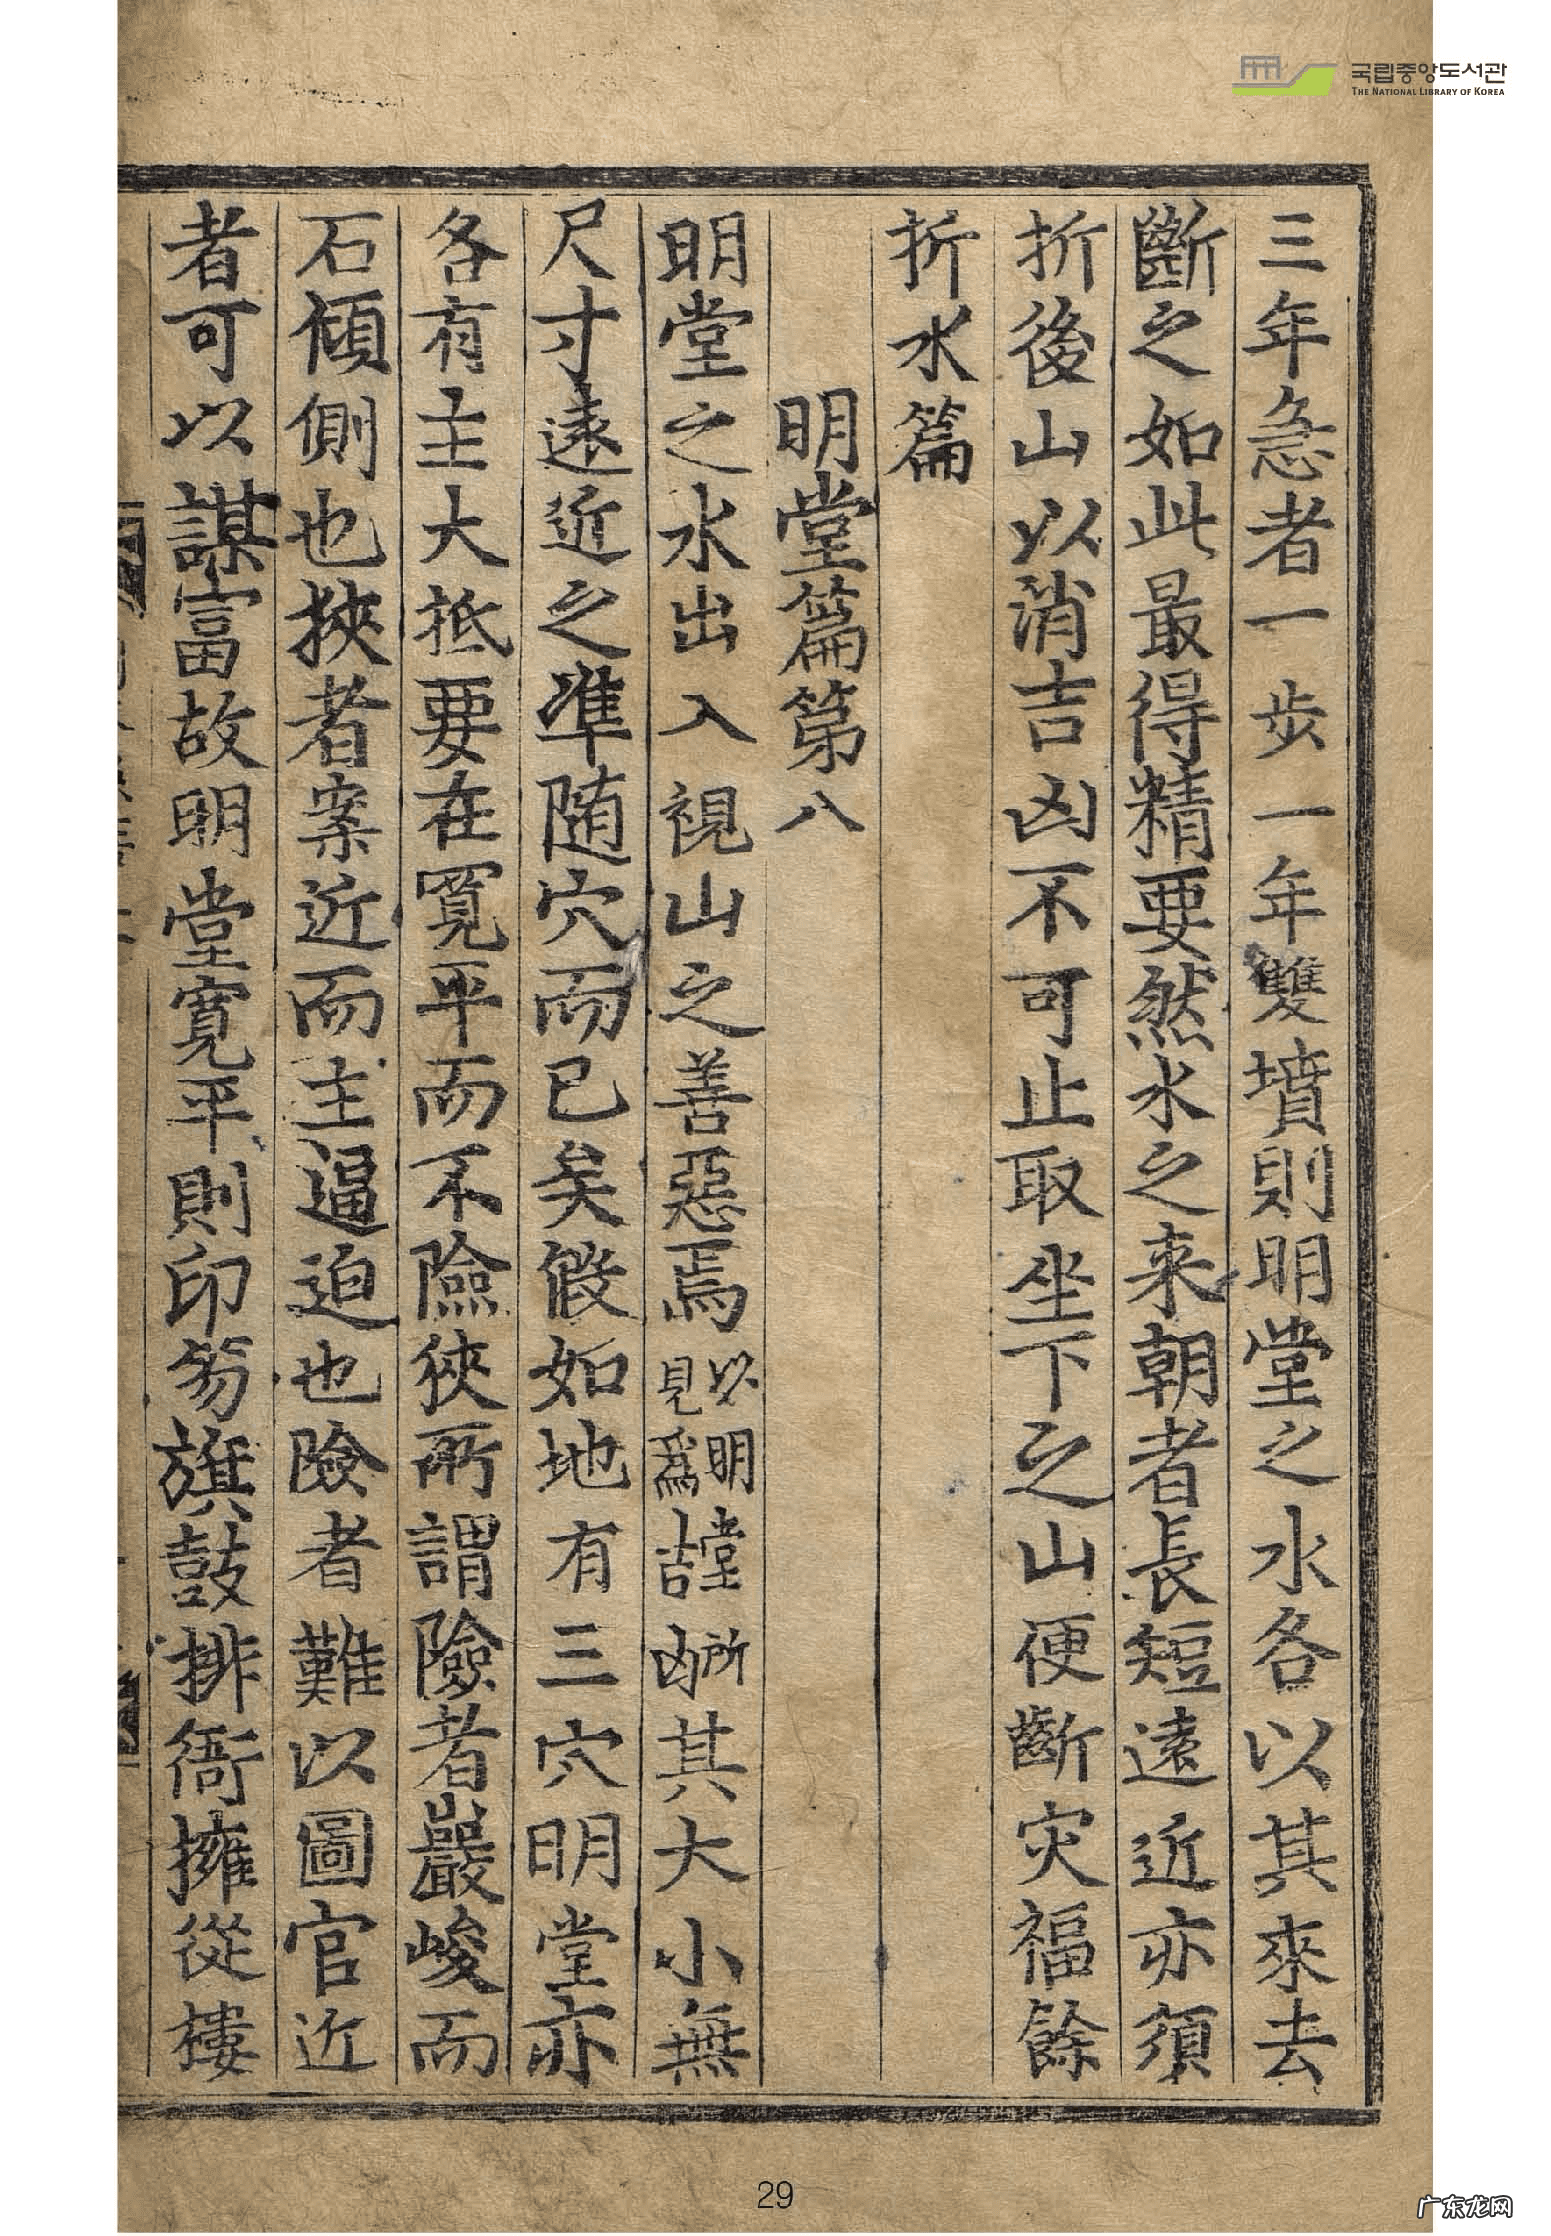 국립중앙도서관
THE NATIONAL LIBRARY OF KOREA
三年急者一步一年雙墳則明堂之水各以其來去
斷之如此最得精要然水之来朝者長短遠近亦須
折後山以消吉凶不可止取坐下之山便斷灾福餘
折水篇
明堂篇第八
明堂之水出入視山之善惡焉以明堂所見爲吉凶其大小無
尺寸遠近之準随穴而已矣假如地有三穴明堂亦
各有主大抵要在寬平而不險狹所謂險者巖峻而
石傾側也挾者案近而主逼迫也險者難以圖官近
者可以謀富故明堂寬平則印笏旗鼓排衙擁從樓
29
广东龙网